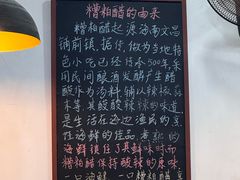 糟粕醋的由来
糟粕醋起源海南文昌
铺前镇,据传,做为当地特
色小吃已经历今500年,采
用民间酿酒发酵产生醋
酸作为汤料,辅以辣椒蒜
末等,其酸酸辣辣的味道
是生活在海边渔民的烹
煮海鲜的佳品。煮熟的
海鲜锁住了其鲜味,而
糟粕醋保持酸辣的原味,
一口海鲜,一口糟粕醋